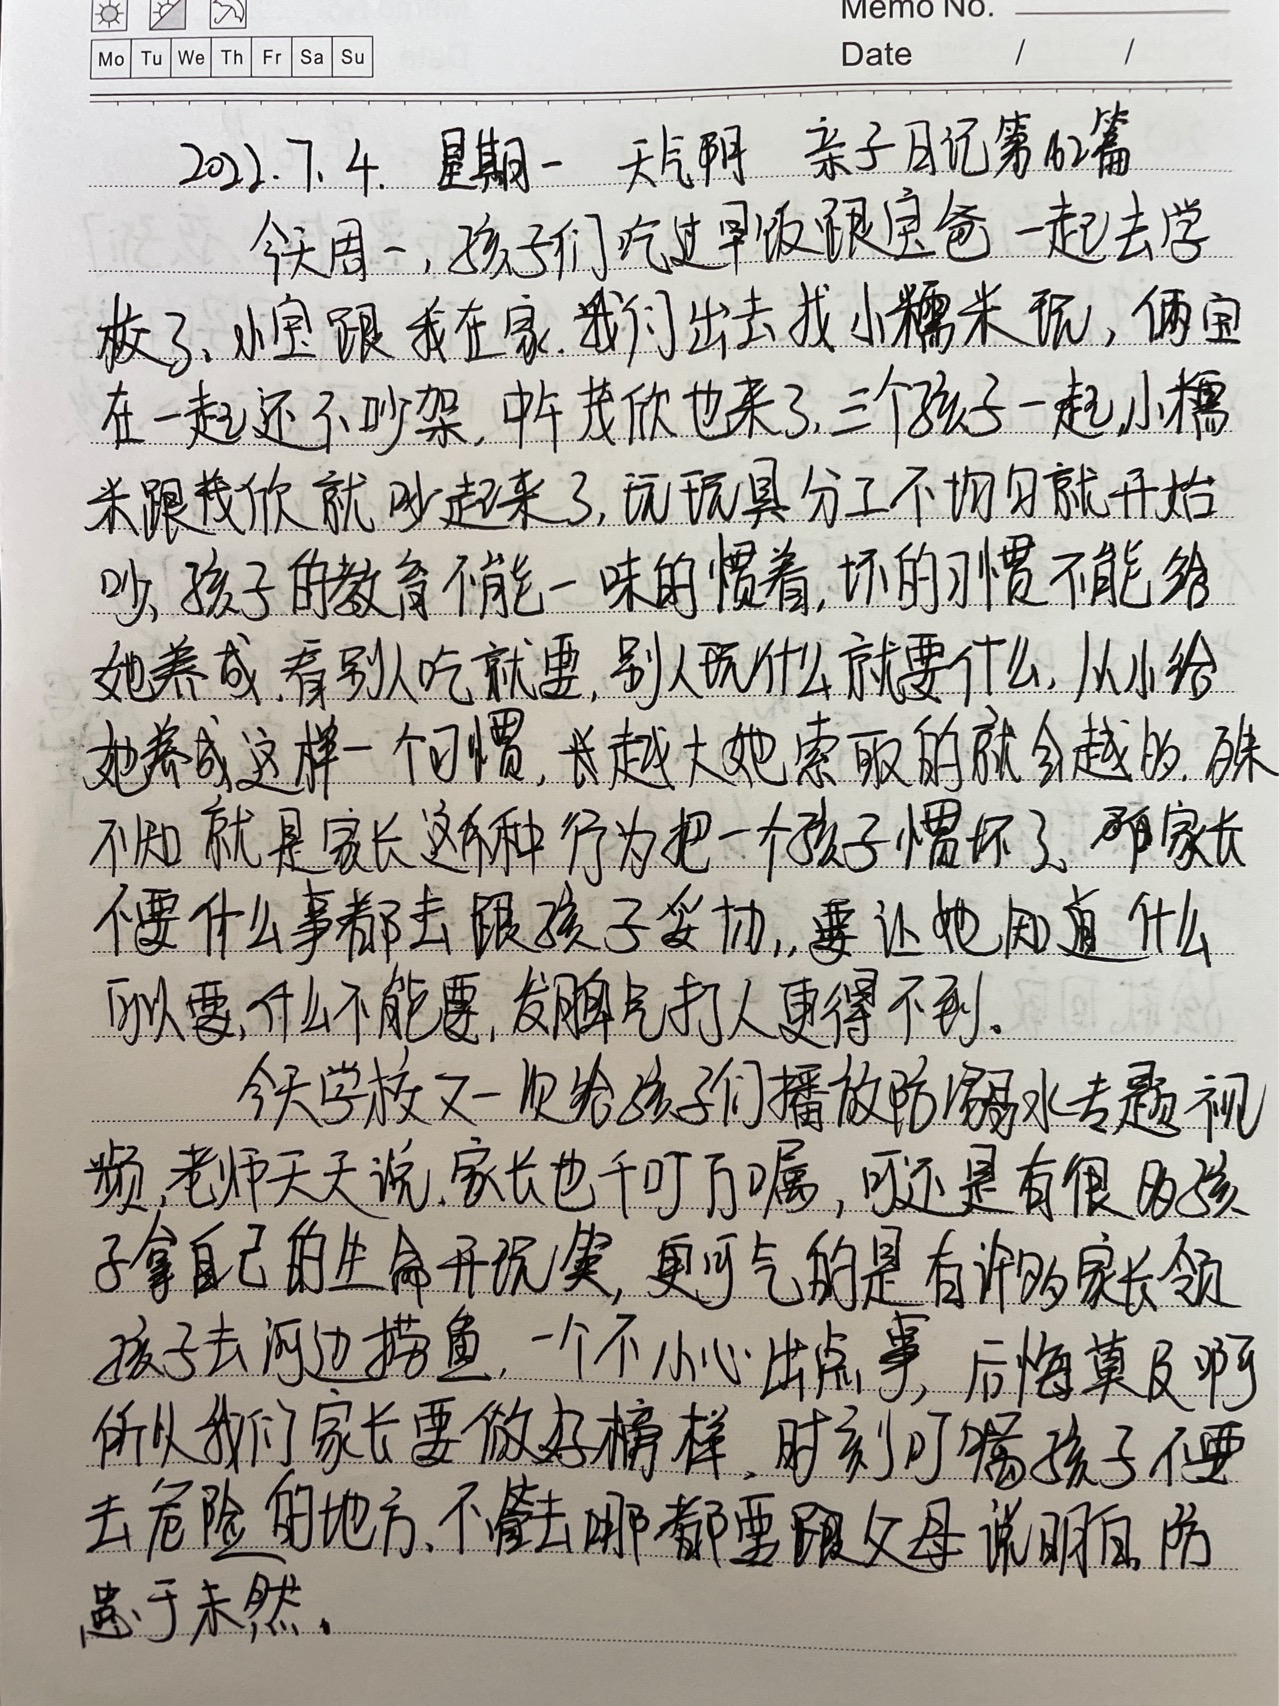 Memo No.
Mo Tu We Th Fr Sa Su
Date / /
2022.7.4. 星期一 天气阴 亲子日记第162篇
今天周一,孩子们吃过早饭跟宝爸一起去学
校了、小宝跟我在家.我们出去找小糯米玩,俩宝
在一起还不吵架,中午茂欣也来了,三个孩子一起,小糯
米跟茂欣就吵起来了,玩玩具分工不均匀就开始
吵,孩子的教育不能一味的惯着,坏的习惯不能给
她养成,看别人吃就要,别人玩什么就要什么,从小给
她养成这样一个习惯,长越大她索取的就会越多,殊
不知就是家长这种行为把一个孩子惯坏了、家长
不要什么事都去跟孩子妥协,,要让她知道什么
可以要,什么不能要,发脾气打人更得不到。
今天学校又一次给孩子们播放防溺水专题视
频,老师天天说,家长也千叮万嘱,可还是有很多孩
子拿自己的生命开玩笑,更可气的是有许多家长领
孩子去河边捞鱼,一个不小心出点事,后悔莫及啊
所以我们家长要做好榜样、时刻叮嘱孩子不要
去危险的地方、不管去哪都要跟父母说明白,防
患于未然.